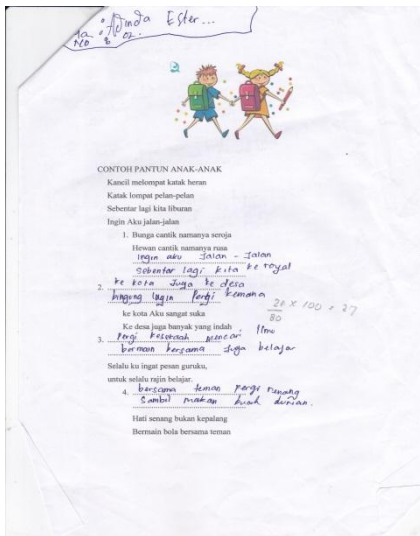 Na : Adinda Ester...
No : 02.
CONTOH PANTUN ANAK-ANAK
Kancil melompat katak heran
Katak lompat pelan-pelan
Sebentar lagi kita liburan
Ingin Aku jalan-jalan
1. Bunga cantik namanya seroja
Hewan cantik namanya rusa
Ingin aku Jalan - Jalan
sebentar lagi kita ke royal
2. ke kota Juga ke desa
bingung ingin Pergi kemana
ke kota Aku sangat suka
Ke desa juga banyak yang indah
3. Pergi kesekolah mencari Ilmu
bermain bersama Juga belajar
Selalu ku ingat pesan guruku,
untuk selalu rajin belajar.
4. bersama teman Pergi renang
Sambil makan buah durian.
Hati senang bukan kepalang
Bermain bola bersama teman